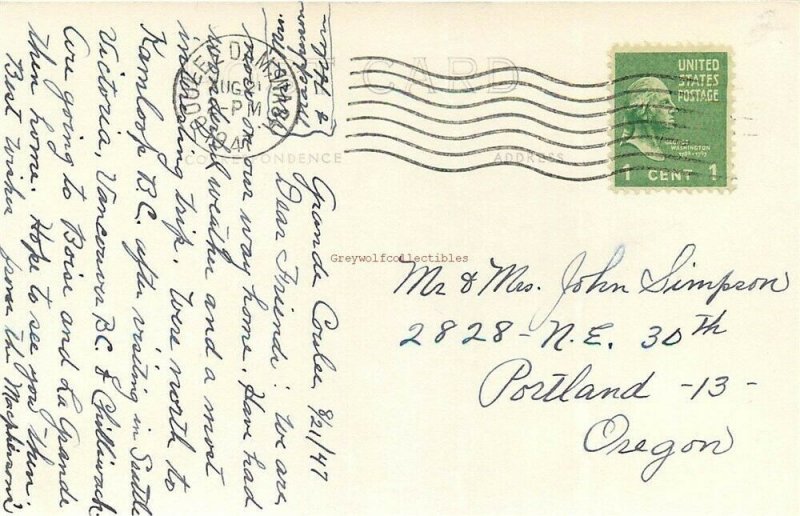 POST CARD
CORRESPONDENCE
ADDRESS
COULEE DAM
AUG 21
PM
UNITED
STATES
POSTAGE
GEORGE
WASHINGTON
1 CENT 1
Greywolfcollectibles
Grande Coulee, 8/21/47
Dear Friends: We are
now on our way home. Have had
wonderful weather and a most
interesting trip. Were north to
Kamloop B.C. after visiting in Seattle
Victoria, Vancouver B.C. & Chilliwack.
Are going to Boise and La Grande
then home. Hope to see you then.
Best wishes from the Macphersons
Mr & Mrs. John Simpson
2828 - N.E. 30th
Portland -13-
Oregon